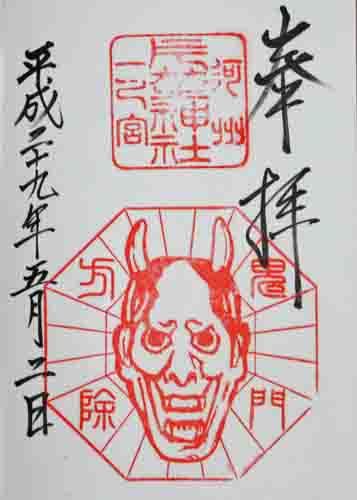 奉拝
河州
片埜神社
一之宮
鬼門
方除
平成二十九年五月二日